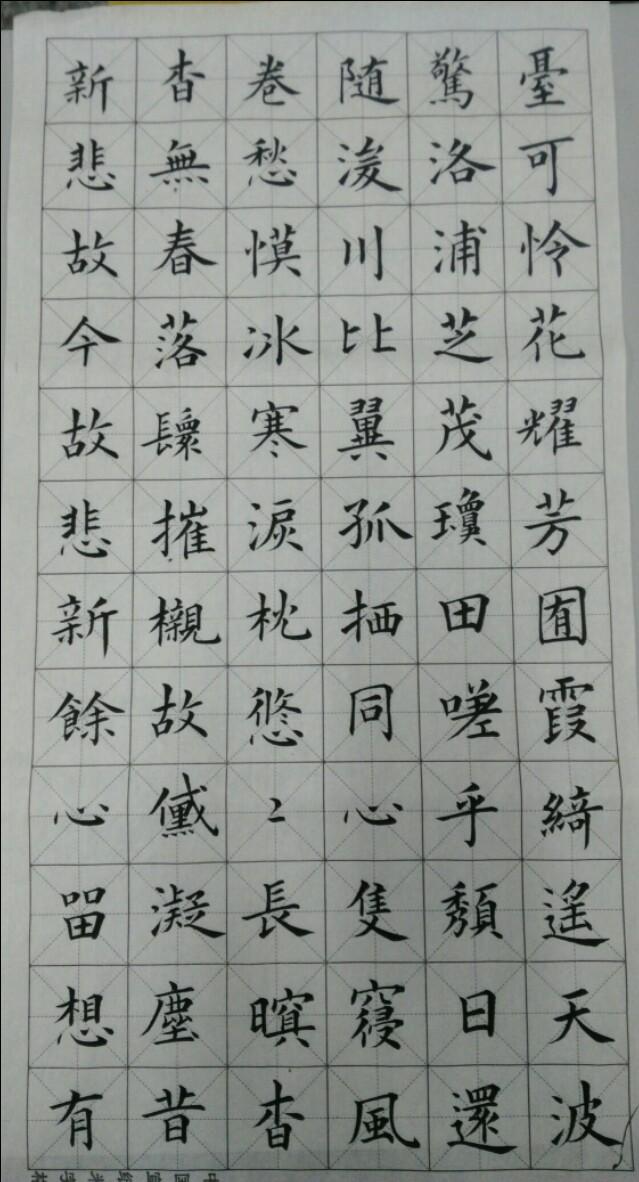 臺可怜花耀芳囿霞綺遙天波
驚洛浦芝茂瓊田嗟乎頹日還
随浚川比翼孤栖同心隻寝風
卷愁慔冰寒淚枕慾〻長暝杳
杳無春落鬟摧櫬故黛凝塵昔
新悲故今故悲新餘心留想有